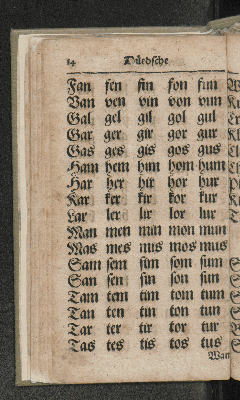 14 Düedsche
Fan fen fin fon fun
Van ven vin von vun
Gal gel gil gol gul
Gar ger gir gor gur
Gas ges gis gos gus
Ham hem him hom hum
Har her hir hor hur
Kar ker kir kor kur
Lar ler lir lor lur
Man men min mon mun
Mas mes mis mos mus
Sam sem sim som sum
San sen sin son sun
Tam tem tim tom tum
Tan ten tin ton tun
Tar ter tir tor tur
Tas tes tis tos tus
Wan